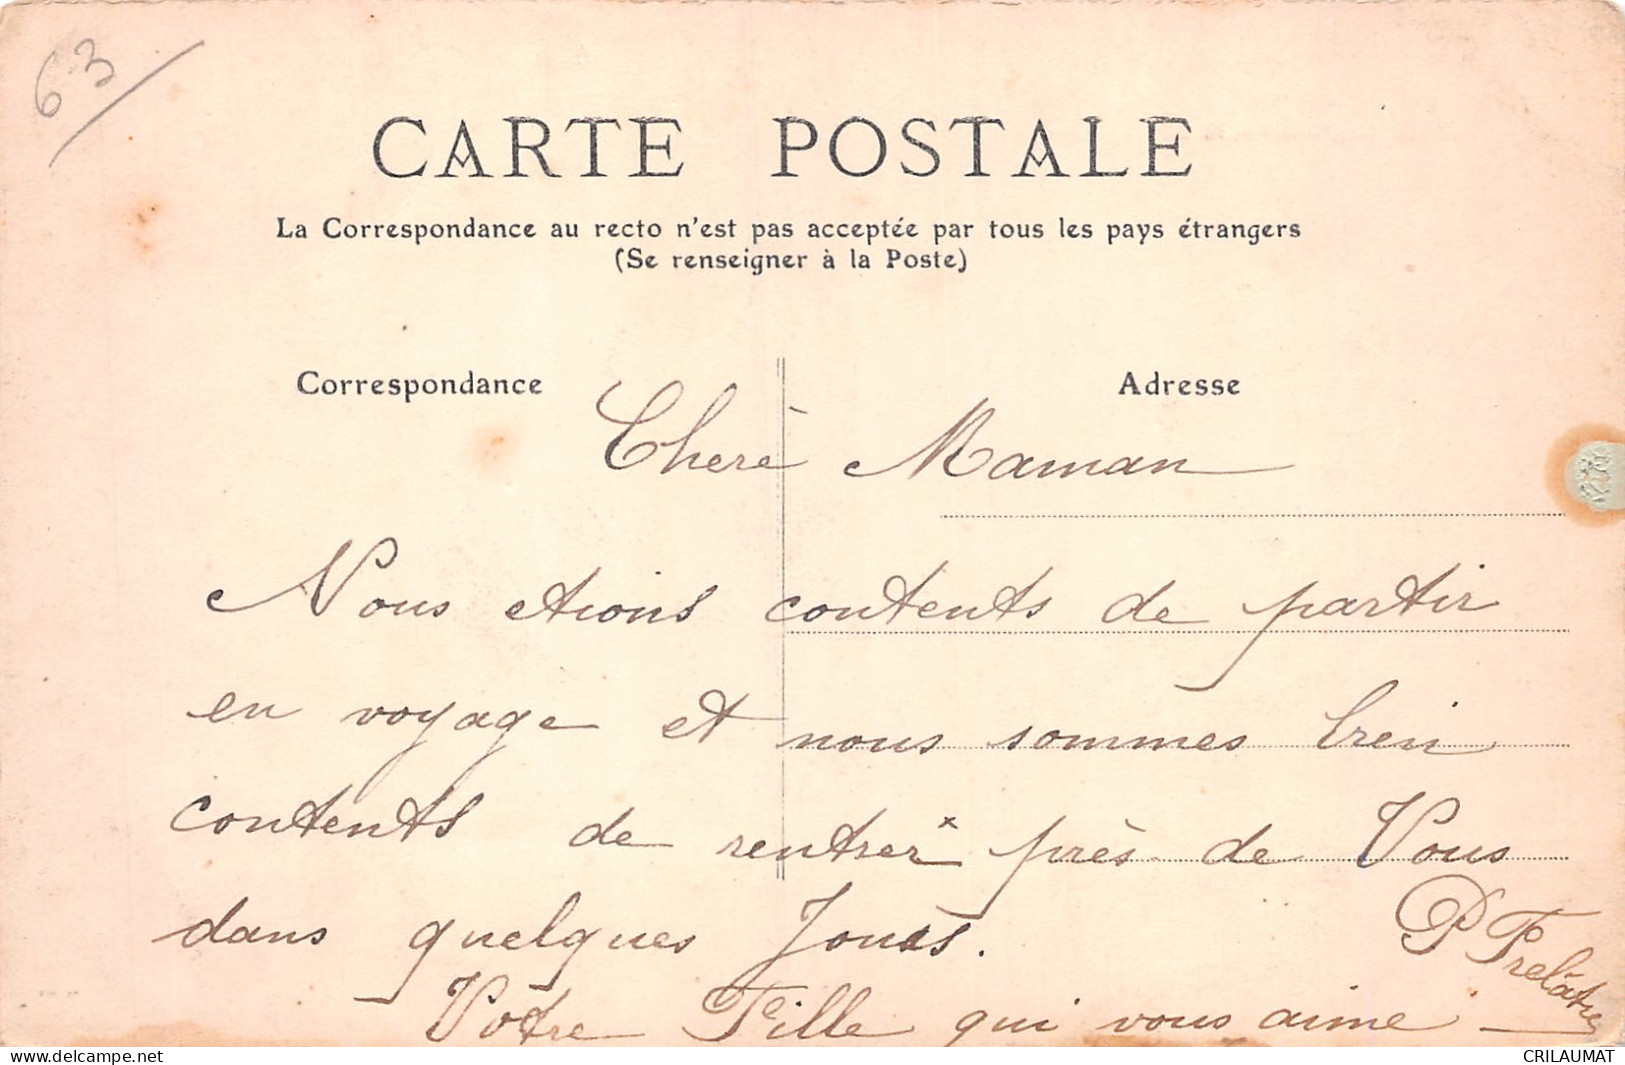 63
CARTE POSTALE
La Correspondance au recto n'est pas acceptée par tous les pays étrangers
(Se renseigner à la Poste)
Correspondance
Adresse
Cherè Maman
Nous etions contents de partir
en voyage et nous sommes bien
contents de rentrer près de Vous
dans quelques Jours.
Votre Fille qui vous aime
delcampe.net
CRILAUMAT